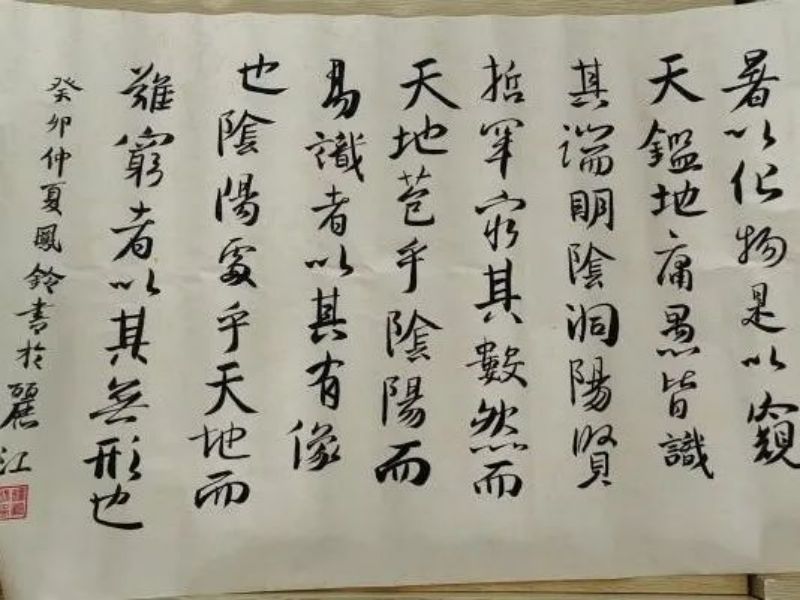 暑以化物是以窺
天鑑地庸愚皆識
其端明陰洞陽賢
哲罕窮其數然而
天地苞乎陰陽而
易識者以其有像
也陰陽處乎天地而
難窮者以其無形也
癸卯仲夏鳳鈴書於麗江